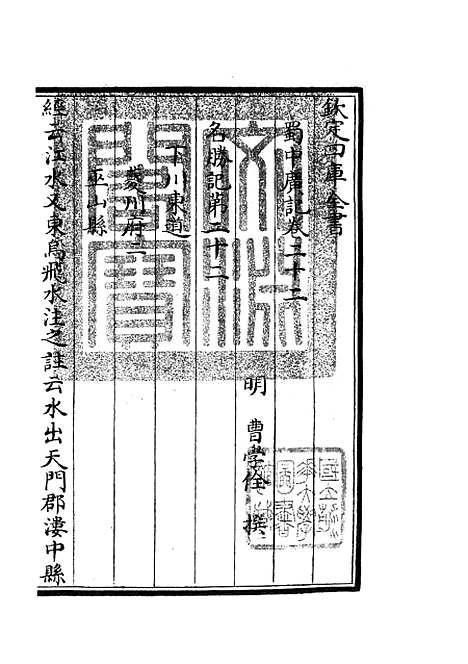 欽定四庫全書
蜀中廣記卷二十二
明 曹學佺 撰
名勝記第二十二
下川東道
夔州府二
巫山縣
經云江水又東烏飛水注之註云水出天門郡漊中縣